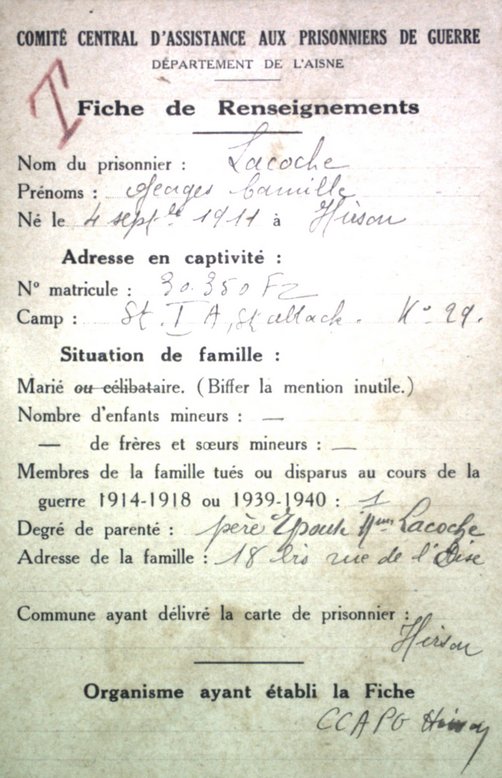 COMITÉ CENTRAL D'ASSISTANCE AUX PRISONNIERS DE GUERRE
DÉPARTEMENT DE L'AISNE
I
Fiche de Renseignements
Nom du prisonnier : Lacoche
Prénoms : Georges Camille
Né le 4 septbre 1911 à Hirson
Adresse en captivité :
N° matricule : 30.350 FZ
Camp : St. I A, Stablack. K° 29.
Situation de famille :
Marié ou célibataire. (Biffer la mention inutile.)
Nombre d'enfants mineurs : —
— de frères et sœurs mineurs : —
Membres de la famille tués ou disparus au cours de la
guerre 1914-1918 ou 1939-1940 : 1
Degré de parenté : père Epouse Mme Lacoche
Adresse de la famille : 18 bis rue de l'Oise
Commune ayant délivré la carte de prisonnier :
Hirson
Organisme ayant établi la Fiche
CCAPG Hirson